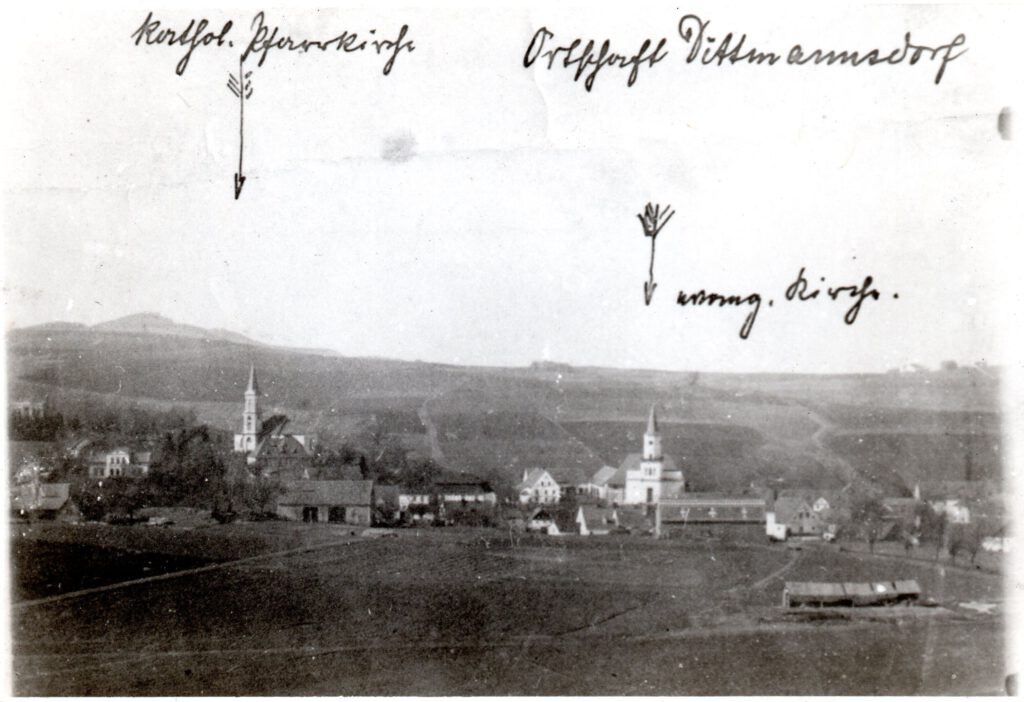 kathol. Pfarrkirche
Ortschaft Dittmannsdorf
evang. Kirche.